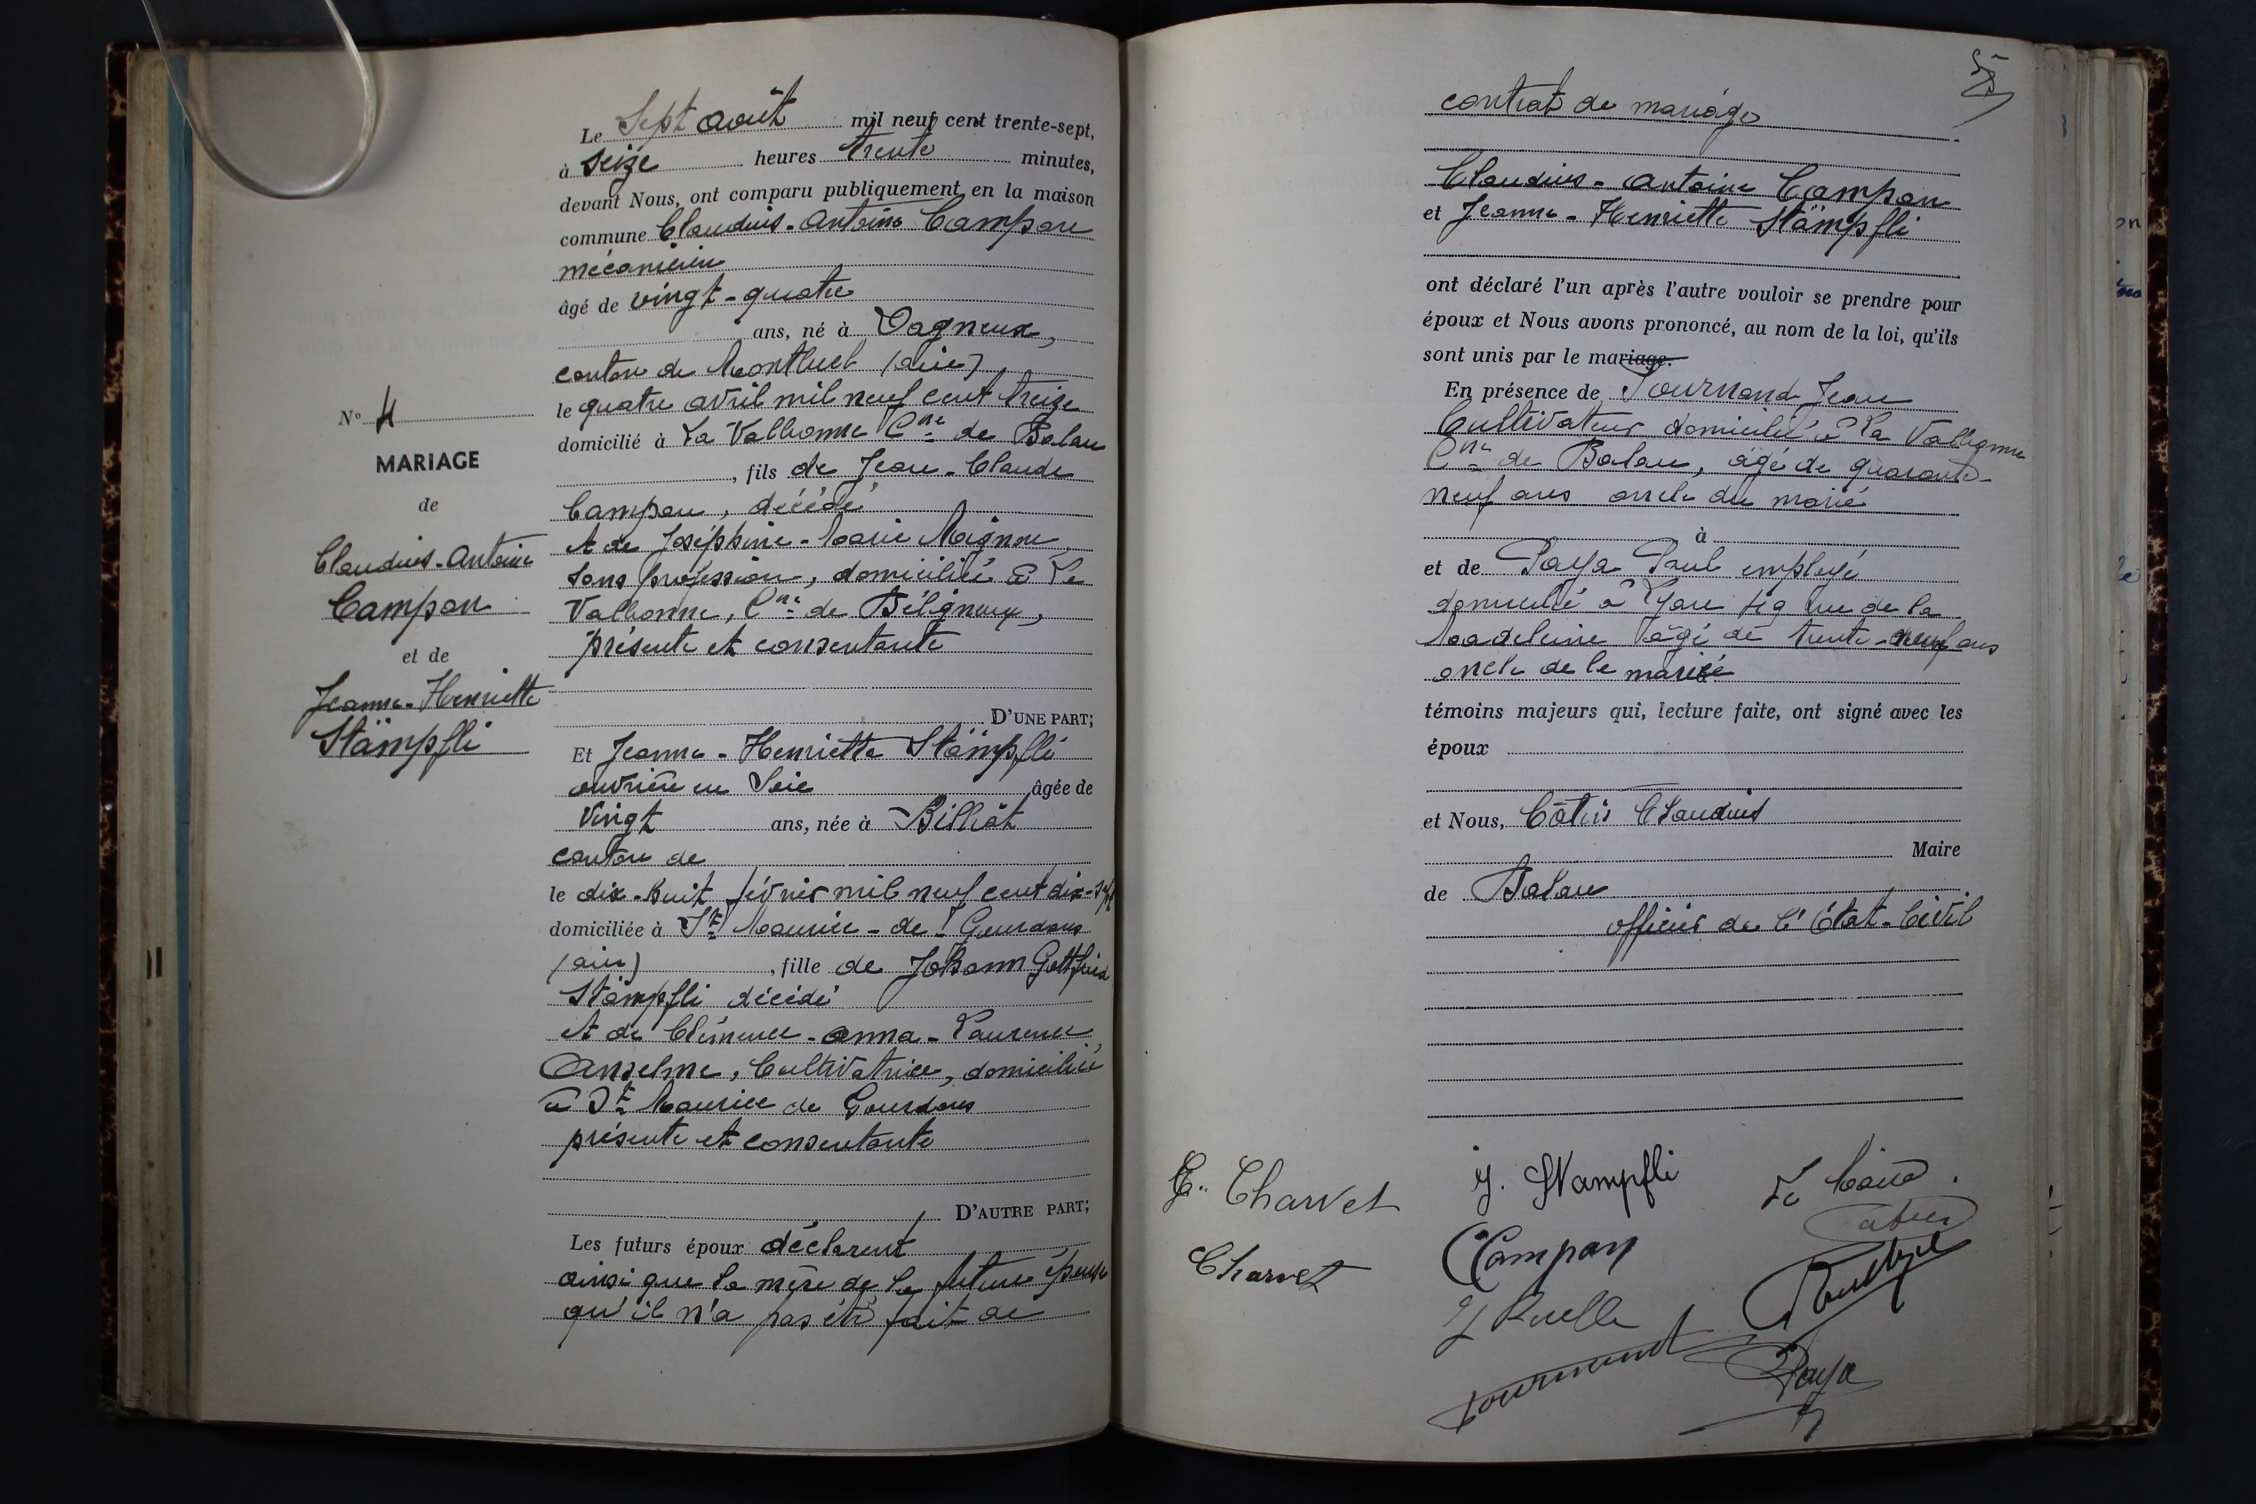 N° 4
MARIAGE
de
Claudius-Antoine
Campan
et de
Jeanne-Henriette
Stämpfli
Le Sept août mil neuf cent trente-sept,
à seize heures trente minutes,
devant Nous, ont comparu publiquement en la maison
commune Claudius-Antoine Campan
mécanicien
âgé de vingt-quatre
ans, né à Dagneux,
canton de Montluel (Ain)
le quatre avril mil neuf cent treize
domicilié à La Valbonne Cne de Balan
, fils de Jean-Claude
Campan, décédé
et de Joséphine-Marie Moignon
sans profession, domiciliée à La
Valbonne, Cne de Béligneux,
présente et consentante
D'UNE PART;
Et Jeanne-Henriette Stämpfli
ouvrière en Soie âgée de
vingt ans, née à Billiat
canton de
le dix-huit février mil neuf cent dix-sept
domiciliée à St Maurice-de-Gourdans
(ain) , fille de Johann Gottfried
Stämpfli décédé
et de Clémence-Anna-Laurence
Anselme, Cultivatrice, domiciliée
à St Maurice de Gourdans
présente et consentante
D'AUTRE PART;
Les futurs époux déclarent
ainsi que la mère de la future épouse
qu'il n'a pas été fait de
contrat de mariage
Claudius-Antoine Campan
et Jeanne-Henriette Stämpfli
ont déclaré l'un après l'autre vouloir se prendre pour
époux et Nous avons prononcé, au nom de la loi, qu'ils
sont unis par le mariage.
En présence de Tournand Jean
Cultivateur domicilié à La Valbonne
Cne de Balan, âgé de quarante-
neuf ans oncle du marié
à
et de Paya Paul employé
domicilié à Lyon 49 rue de la
Madeleine âgé de trente-neuf ans
oncle de la mariée
témoins majeurs qui, lecture faite, ont signé avec les
époux
et Nous, Côtis Claudius
Maire
de Balan
officier de l'État-Civil
G. Charvet
J. Stampfli
Le Maire.
Charvet
Campan
J Ruelle
Tournand
Paya